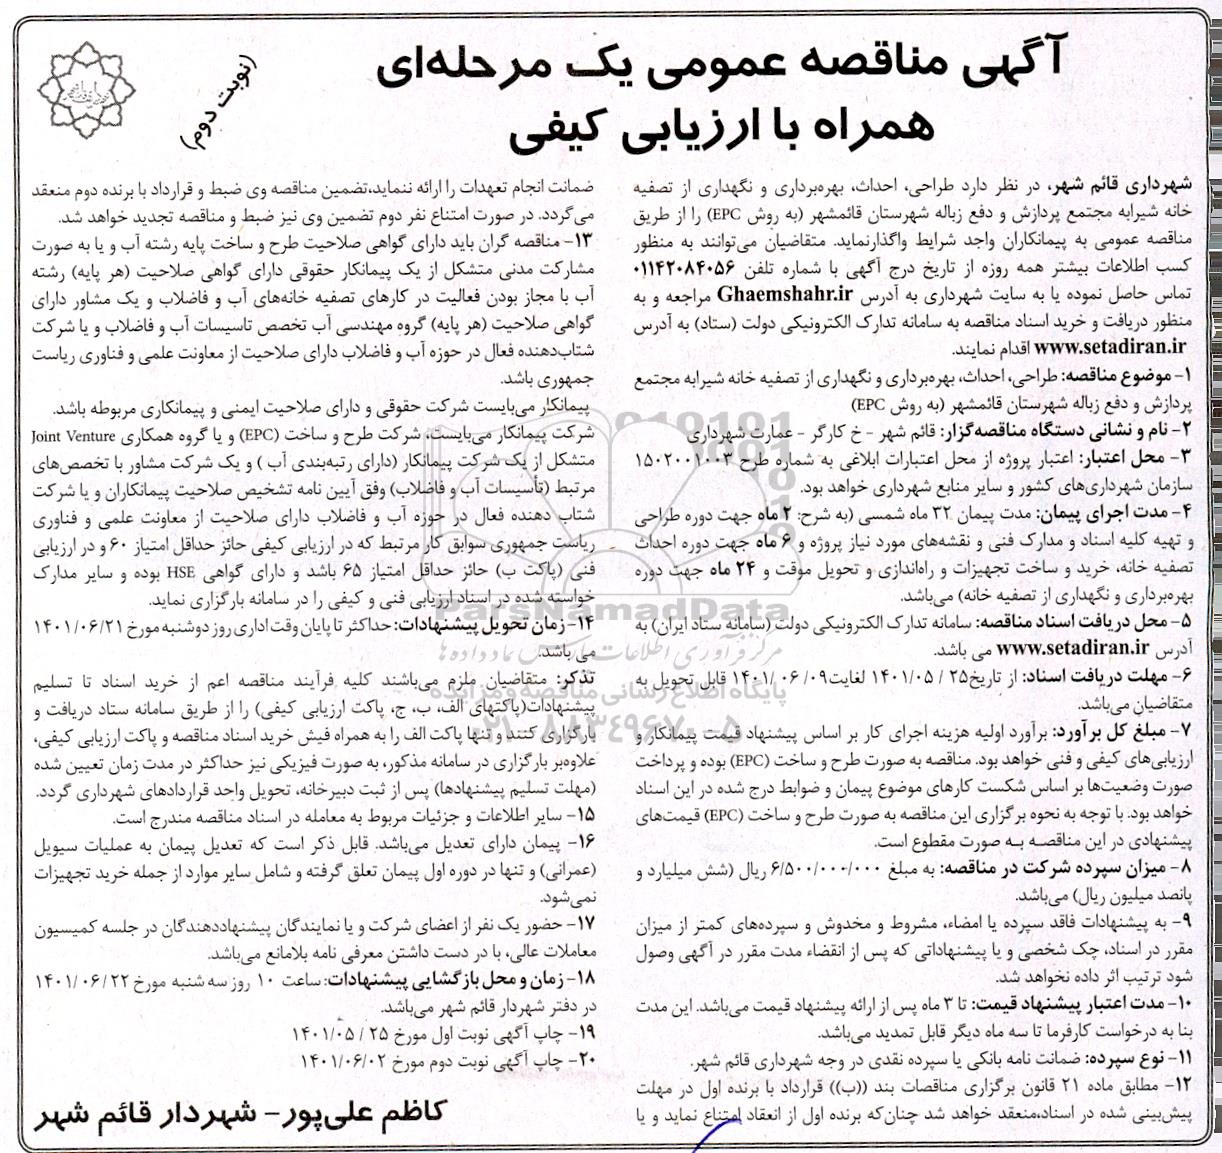 آگهی مناقصه عمومی یک مرحله‌ای
همراه با ارزیابی کیفی
(نوبت دوم)
شهرداری قائم شهر، در نظر دارد طراحی، احداث، بهره‌برداری و نگهداری از تصفیه
خانه شیرابه مجتمع پردازش و دفع زباله شهرستان قائمشهر (به روش EPC) را از طریق
مناقصه عمومی به پیمانکاران واجد شرایط واگذارنماید. متقاضیان می‌توانند به منظور
کسب اطلاعات بیشتر همه روزه از تاریخ درج آگهی با شماره تلفن ۰۱۱۴۲۰۸۴۰۵۶
تماس حاصل نموده یا به سایت شهرداری به آدرس Ghaemshahr.ir مراجعه و به
منظور دریافت و خرید اسناد مناقصه به سامانه تدارک الکترونیکی دولت (ستاد) به آدرس
www.setadiran.ir اقدام نمایند.
۱- موضوع مناقصه: طراحی، احداث، بهره‌برداری و نگهداری از تصفیه خانه شیرابه مجتمع
پردازش و دفع زباله شهرستان قائمشهر (به روش EPC)
۲- نام و نشانی دستگاه مناقصه‌گزار: قائم شهر - خ کارگر - عمارت شهرداری
۳- محل اعتبار: اعتبار پروژه از محل اعتبارات ابلاغی به شماره طرح ۱۵۰۲۰۰۱۰۰۳
سازمان شهرداری‌های کشور و سایر منابع شهرداری خواهد بود.
۴- مدت اجرای پیمان: مدت پیمان ۳۲ ماه شمسی (به شرح: ۲ ماه جهت دوره طراحی
و تهیه کلیه اسناد و مدارک فنی و نقشه‌های مورد نیاز پروژه و ۶ ماه جهت دوره احداث
تصفیه خانه، خرید و ساخت تجهیزات و راه‌اندازی و تحویل موقت و ۲۴ ماه جهت دوره
بهره‌برداری و نگهداری از تصفیه خانه) می‌باشد.
۵- محل دریافت اسناد مناقصه: سامانه تدارک الکترونیکی دولت (سامانه ستاد ایران) به
آدرس www.setadiran.ir می باشد.
۶- مهلت دریافت اسناد: از تاریخ۲۵ / ۰۵ /۱۴۰۱ لغایت۰۹ /۰۶ /۱۴۰۱ قابل تحویل به
متقاضیان می‌باشد.
۷- مبلغ کل برآورد: برآورد اولیه هزینه اجرای کار بر اساس پیشنهاد قیمت پیمانکار و
ارزیابی‌های کیفی و فنی خواهد بود. مناقصه به صورت طرح و ساخت (EPC) بوده و پرداخت
صورت وضعیت‌ها بر اساس شکست کارهای موضوع پیمان و ضوابط درج شده در این اسناد
خواهد بود. با توجه به نحوه برگزاری این مناقصه به صورت طرح و ساخت (EPC) قیمت‌های
پیشنهادی در این مناقصه به صورت مقطوع است.
۸- میزان سپرده شرکت در مناقصه: به مبلغ ۶/۵۰۰/۰۰۰/۰۰۰ ریال (شش میلیارد و
پانصد میلیون ریال) می‌باشد.
۹- به پیشنهادات فاقد سپرده یا امضاء، مشروط و مخدوش و سپرده‌های کمتر از میزان
مقرر در اسناد، چک شخصی و یا پیشنهاداتی که پس از انقضاء مدت مقرر در آگهی وصول
شود ترتیب اثر داده نخواهد شد.
۱۰- مدت اعتبار پیشنهاد قیمت: تا ۳ ماه پس از ارائه پیشنهاد قیمت می‌باشد. این مدت
بنا به درخواست کارفرما تا سه ماه دیگر قابل تمدید می‌باشد.
۱۱- نوع سپرده: ضمانت نامه بانکی یا سپرده نقدی در وجه شهرداری قائم شهر.
۱۲- مطابق ماده ۲۱ قانون برگزاری مناقصات بند ((ب)) قرارداد با برنده اول در مهلت
پیش‌بینی شده در اسناد،منعقد خواهد شد چنان‌که برنده اول از انعقاد امتناع نماید و یا
ضمانت انجام تعهدات را ارائه ننماید،تضمین مناقصه وی ضبط و قرارداد با برنده دوم منعقد
می‌گردد. در صورت امتناع نفر دوم تضمین وی نیز ضبط و مناقصه تجدید خواهد شد.
۱۳- مناقصه گران باید دارای گواهی صلاحیت طرح و ساخت پایه رشته آب و یا به صورت
مشارکت مدنی متشکل از یک پیمانکار حقوقی دارای گواهی صلاحیت (هر پایه) رشته
آب با مجاز بودن فعالیت در کارهای تصفیه خانه‌های آب و فاضلاب و یک مشاور دارای
گواهی صلاحیت (هر پایه) گروه مهندسی آب تخصص تاسیسات آب و فاضلاب و یا شرکت
شتاب‌دهنده فعال در حوزه آب و فاضلاب دارای صلاحیت از معاونت علمی و فناوری ریاست
جمهوری باشد.
پیمانکار می‌بایست شرکت حقوقی و دارای صلاحیت ایمنی و پیمانکاری مربوطه باشد.
شرکت پیمانکار می‌بایست، شرکت طرح و ساخت (EPC) و یا گروه همکاری Joint Venture
متشکل از یک شرکت پیمانکار (دارای رتبه‌بندی آب ) و یک شرکت مشاور با تخصص‌های
مرتبط (تأسیسات آب و فاضلاب) وفق آیین نامه تشخیص صلاحیت پیمانکاران و یا شرکت
شتاب دهنده فعال در حوزه آب و فاضلاب دارای صلاحیت از معاونت علمی و فناوری
ریاست جمهوری سوابق کار مرتبط که در ارزیابی کیفی حائز حداقل امتیاز ۶۰ و در ارزیابی
فنی (پاکت ب) حائز حداقل امتیاز ۶۵ باشد و دارای گواهی HSE بوده و سایر مدارک
خواسته شده در اسناد ارزیابی فنی و کیفی را در سامانه بارگزاری نماید.
۱۴- زمان تحویل پیشنهادات: حداکثر تا پایان وقت اداری روز دوشنبه مورخ ۱۴۰۱/۰۶/۲۱
می باشد.
تذکر: متقاضیان ملزم می‌باشند کلیه فرآیند مناقصه اعم از خرید اسناد تا تسلیم
پیشنهادات(پاکتهای الف، ب، ج، پاکت ارزیابی کیفی) را از طریق سامانه ستاد دریافت و
بارگزاری کنند و تنها پاکت الف را به همراه فیش خرید اسناد مناقصه و پاکت ارزیابی کیفی،
علاوه‌بر بارگزاری در سامانه مذکور، به صورت فیزیکی نیز حداکثر در مدت زمان تعیین شده
(مهلت تسلیم پیشنهادها) پس از ثبت دبیرخانه، تحویل واحد قراردادهای شهرداری گردد.
۱۵- سایر اطلاعات و جزئیات مربوط به معامله در اسناد مناقصه مندرج است.
۱۶- پیمان دارای تعدیل می‌باشد. قابل ذکر است که تعدیل پیمان به عملیات سیویل
(عمرانی) و تنها در دوره اول پیمان تعلق گرفته و شامل سایر موارد از جمله خرید تجهیزات
نمی‌شود.
۱۷- حضور یک نفر از اعضای شرکت و یا نمایندگان پیشنهاددهندگان در جلسه کمیسیون
معاملات عالی، با در دست داشتن معرفی نامه بلامانع می‌باشد.
۱۸- زمان و محل بازگشایی پیشنهادات: ساعت ۱۰ روز سه شنبه مورخ ۱۴۰۱/۰۶/۲۲
در دفتر شهردار قائم شهر می‌باشد.
۱۹- چاپ آگهی نوبت اول مورخ ۲۵ / ۱۴۰۱/۰۵
۲۰- چاپ آگهی نوبت دوم مورخ ۱۴۰۱/۰۶/۰۲
کاظم علی‌پور- شهردار قائم شهر
ParsNamadData
مرکز فرآوری اطلاعات پارس نماد داده ها
پایگاه اطلاع رسانی مناقصه و مزایده
۰۲۱-۸۸۳۴۹۶۷۰-۵